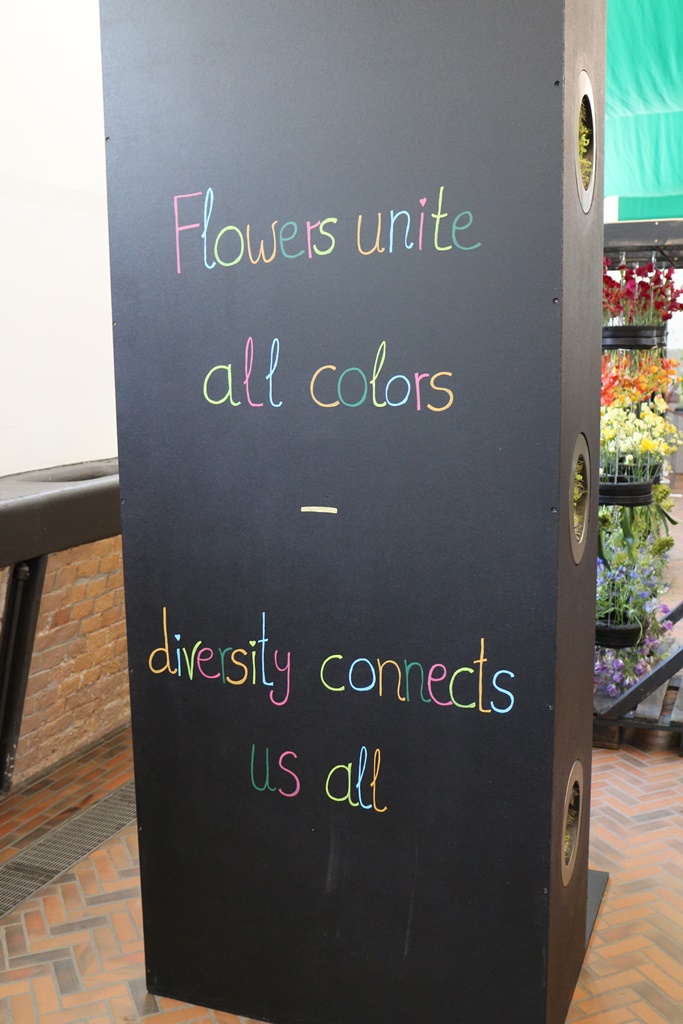 Flowers unite
all colors
–
diversity connects
us all